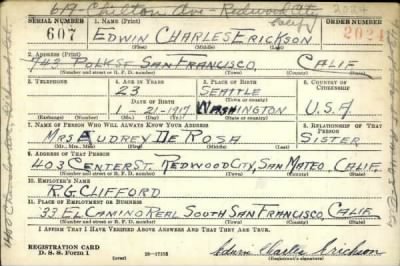 619- Chilton Ave - Redwood City
Calif
SERIAL NUMBER 1. NAME (Print) ORDER NUMBER
607 EDWIN CHARLES ERICKSON 2024
(First) (Middle) (Last)
2. ADDRESS (Print)
743 POLK ST SAN FRANCISCO, CALIF
(Number and street or R. F. D. number) (Town) (County) (State)
3. TELEPHONE 4. AGE IN YEARS 5. PLACE OF BIRTH 6. COUNTRY OF CITIZENSHIP
23 SEATTLE
DATE OF BIRTH (Town or county)
1-21-1917 WASHINGTON U.S.A
(Exchange) (Number) (Mo.) (Day) (Yr.) (State or country)
7. NAME OF PERSON WHO WILL ALWAYS KNOW YOUR ADDRESS 8. RELATIONSHIP OF THAT PERSON
MRS AUDREY DE ROSA SISTER
(Mr., Mrs., Miss) (First) (Middle) (Last)
9. ADDRESS OF THAT PERSON
403 CENTER ST. REDWOOD CITY, SAN MATEO, CALIF.
(Number and street or R. F. D. number) (Town) (County) (State)
10. EMPLOYER'S NAME
R.G CLIFFORD
11. PLACE OF EMPLOYMENT OR BUSINESS
33 EL CAMINO REAL SOUTH SAN FRANCISCO, CALIF
(Number and street or R. F. D. number) (Town) (County) (State)
I AFFIRM THAT I HAVE VERIFIED ABOVE ANSWERS AND THAT THEY ARE TRUE.
REGISTRATION CARD
D. S. S. Form 1 16-17105 Edwin Charles Erickson
(Registrant's signature)